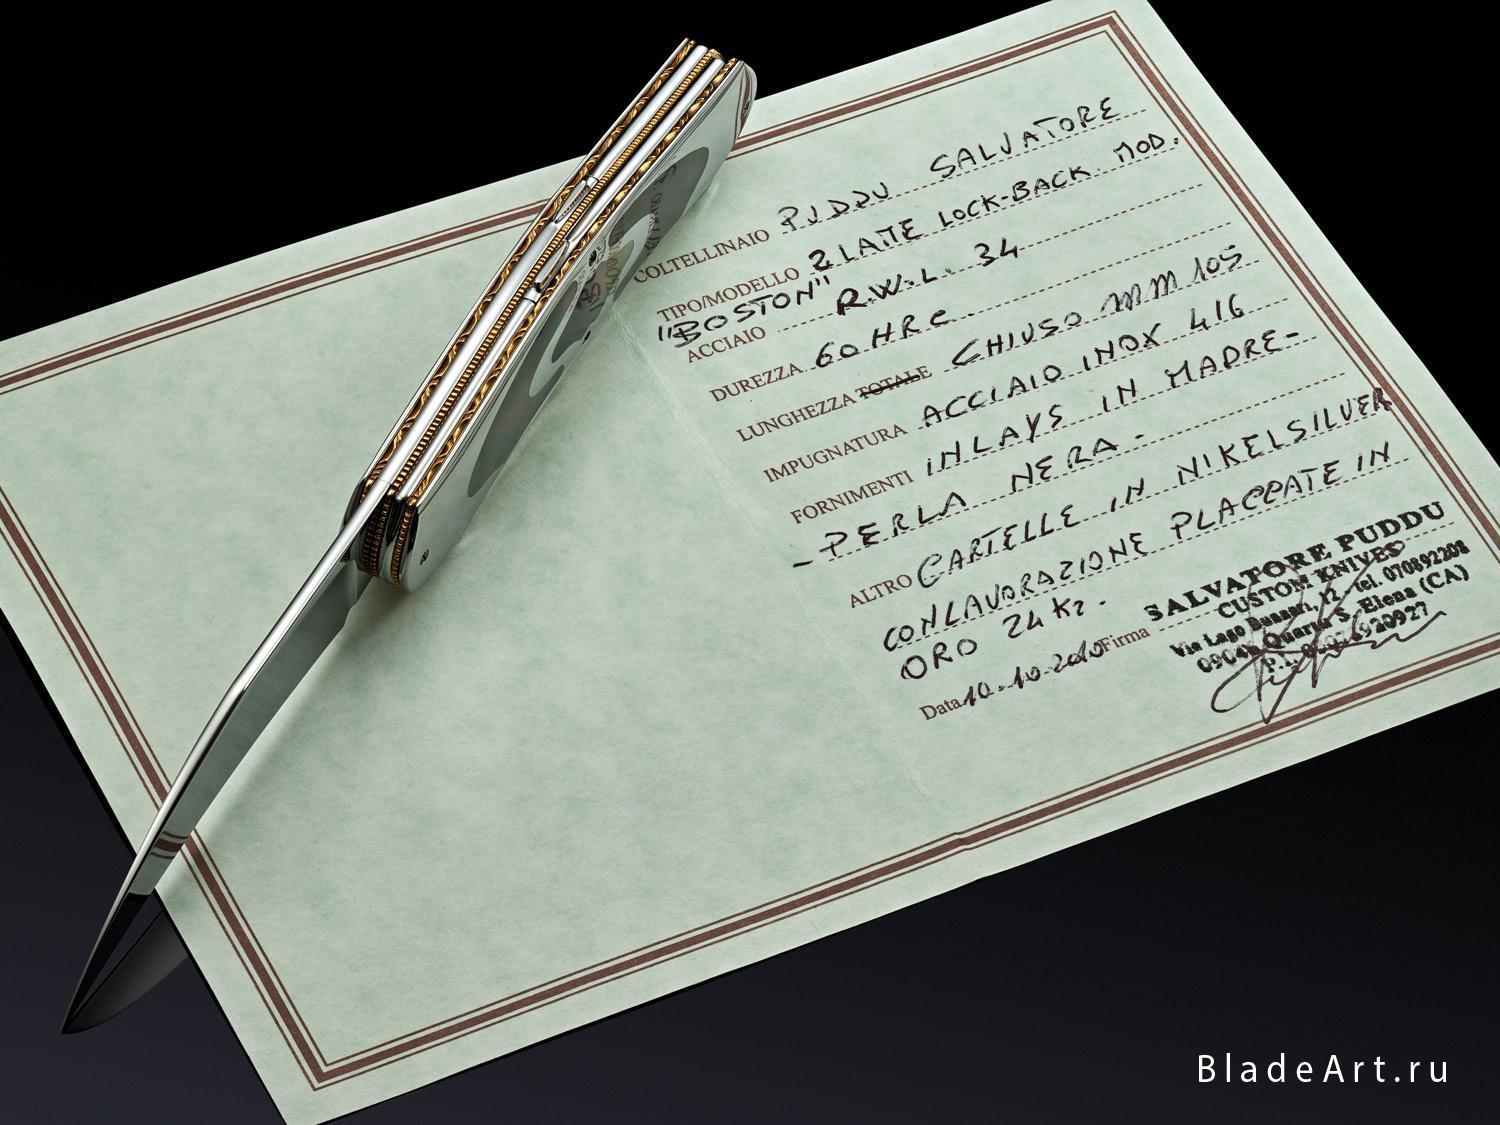 COLTELLINAIO PUDDU SALVATORE
TIPO/MODELLO 2 LAME LOCK-BACK MOD.
"BOSTON"
ACCIAIO R.W.L. 34
DUREZZA 60 HRC
LUNGHEZZA TOTALE CHIUSO MM 105
IMPUGNATURA ACCIAIO INOX 416
FORNIMENTI INLAYS IN MADRE-
-PERLA NERA.
ALTRO CARTELLE IN NIKELSILVER
CON LAVORAZIONE PLACCATE IN
ORO 24 Kt.
Data 10.10.2010 Firma
SALVATORE PUDDU
CUSTOM KNIVES
Via Lago Bunnari, 12 tel. 070892208
Quartu S. Elena (CA)
P.I.
BladeArt.ru